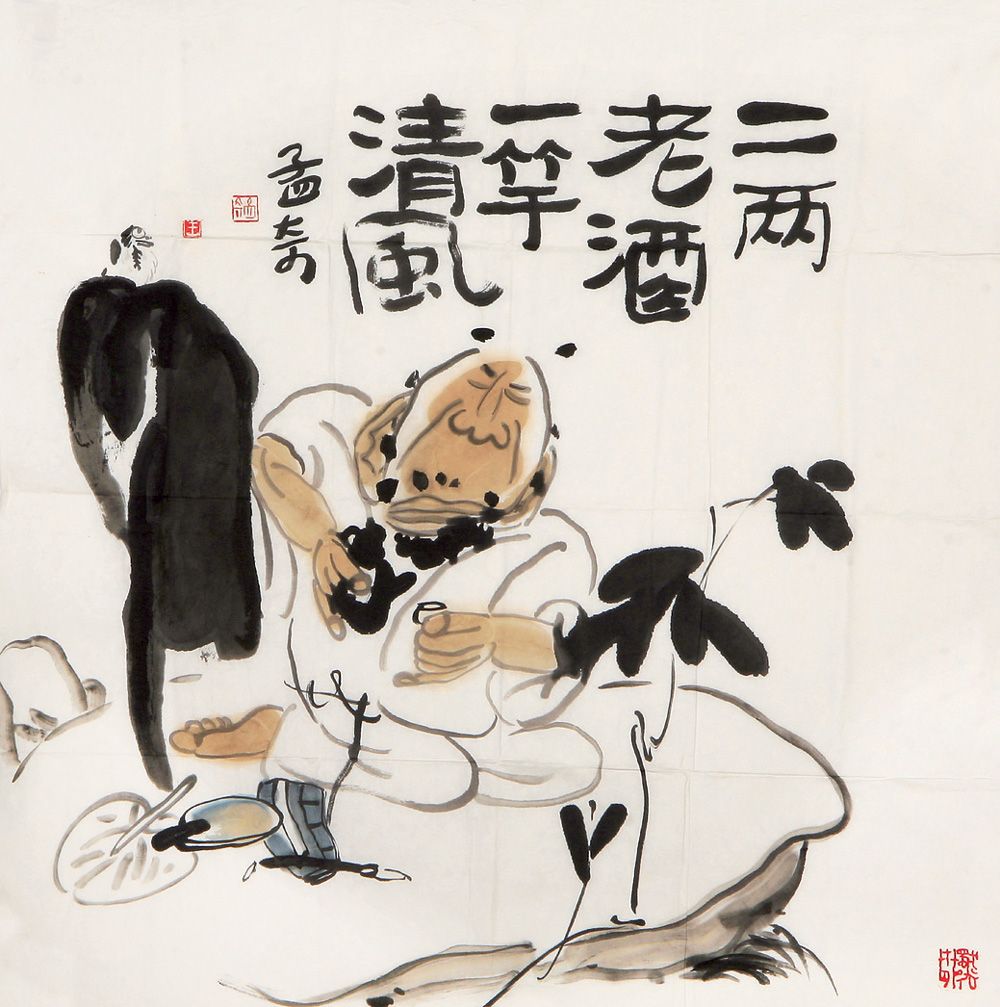 二两
老酒
一竿
清風
孟大奇